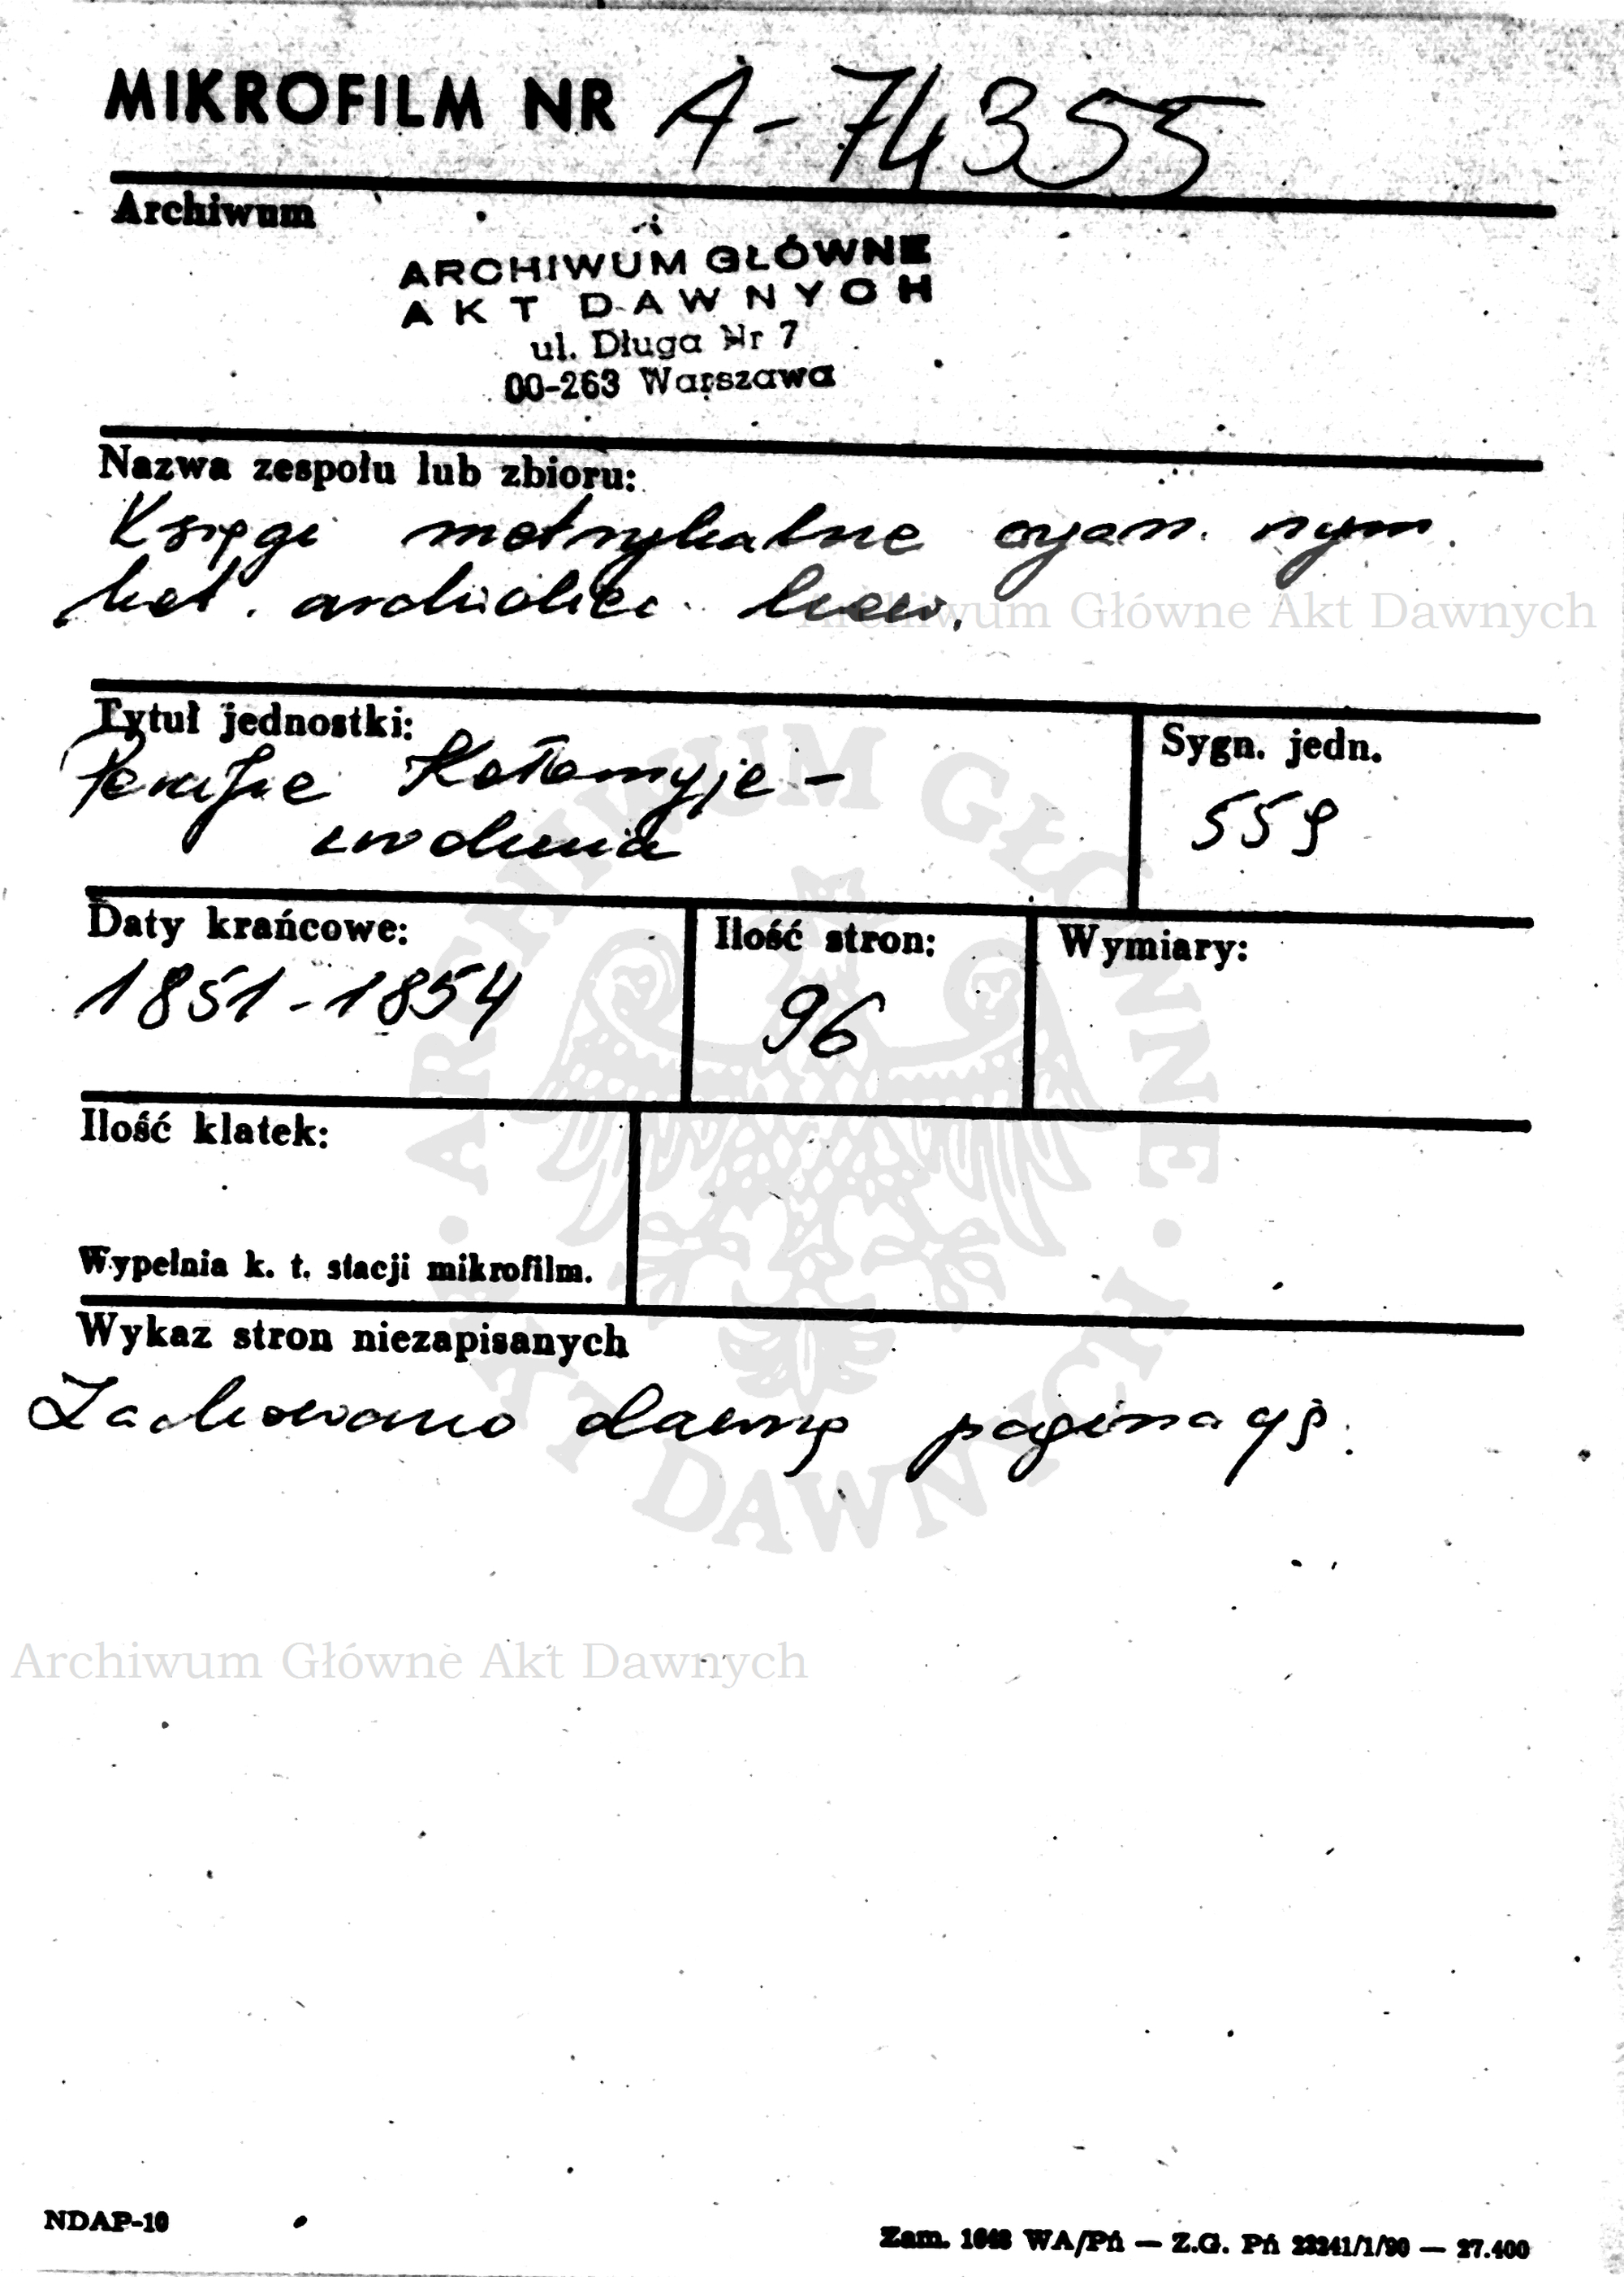 MIKROFILM NR A-74355
Archiwum
ARCHIWUM GŁÓWNE
AKT DAWNYCH
ul. Długa Nr 7
00-263 Warszawa
Nazwa zespołu lub zbioru:
Księgi metrykalne rzym.
kat. archidiec. lwow.
Archiwum Główne Akt Dawnych
Tytuł jednostki:
Parafie Kołomyje -
Sygn. jedn.
559
Daty krańcowe:
1851-1854
Ilość stron:
96
Wymiary:
Ilość klatek:
Wypełnia k. t. stacji mikrofilm.
Wykaz stron niezapisanych
Zachowano dawną paginację.
ARCHIWUM GŁÓWNE AKT DAWNYCH
Archiwum Główne Akt Dawnych
NDAP-10
Zam. 1648 WA/Pń — Z.G. Pń 23241/1/90 — 27.400